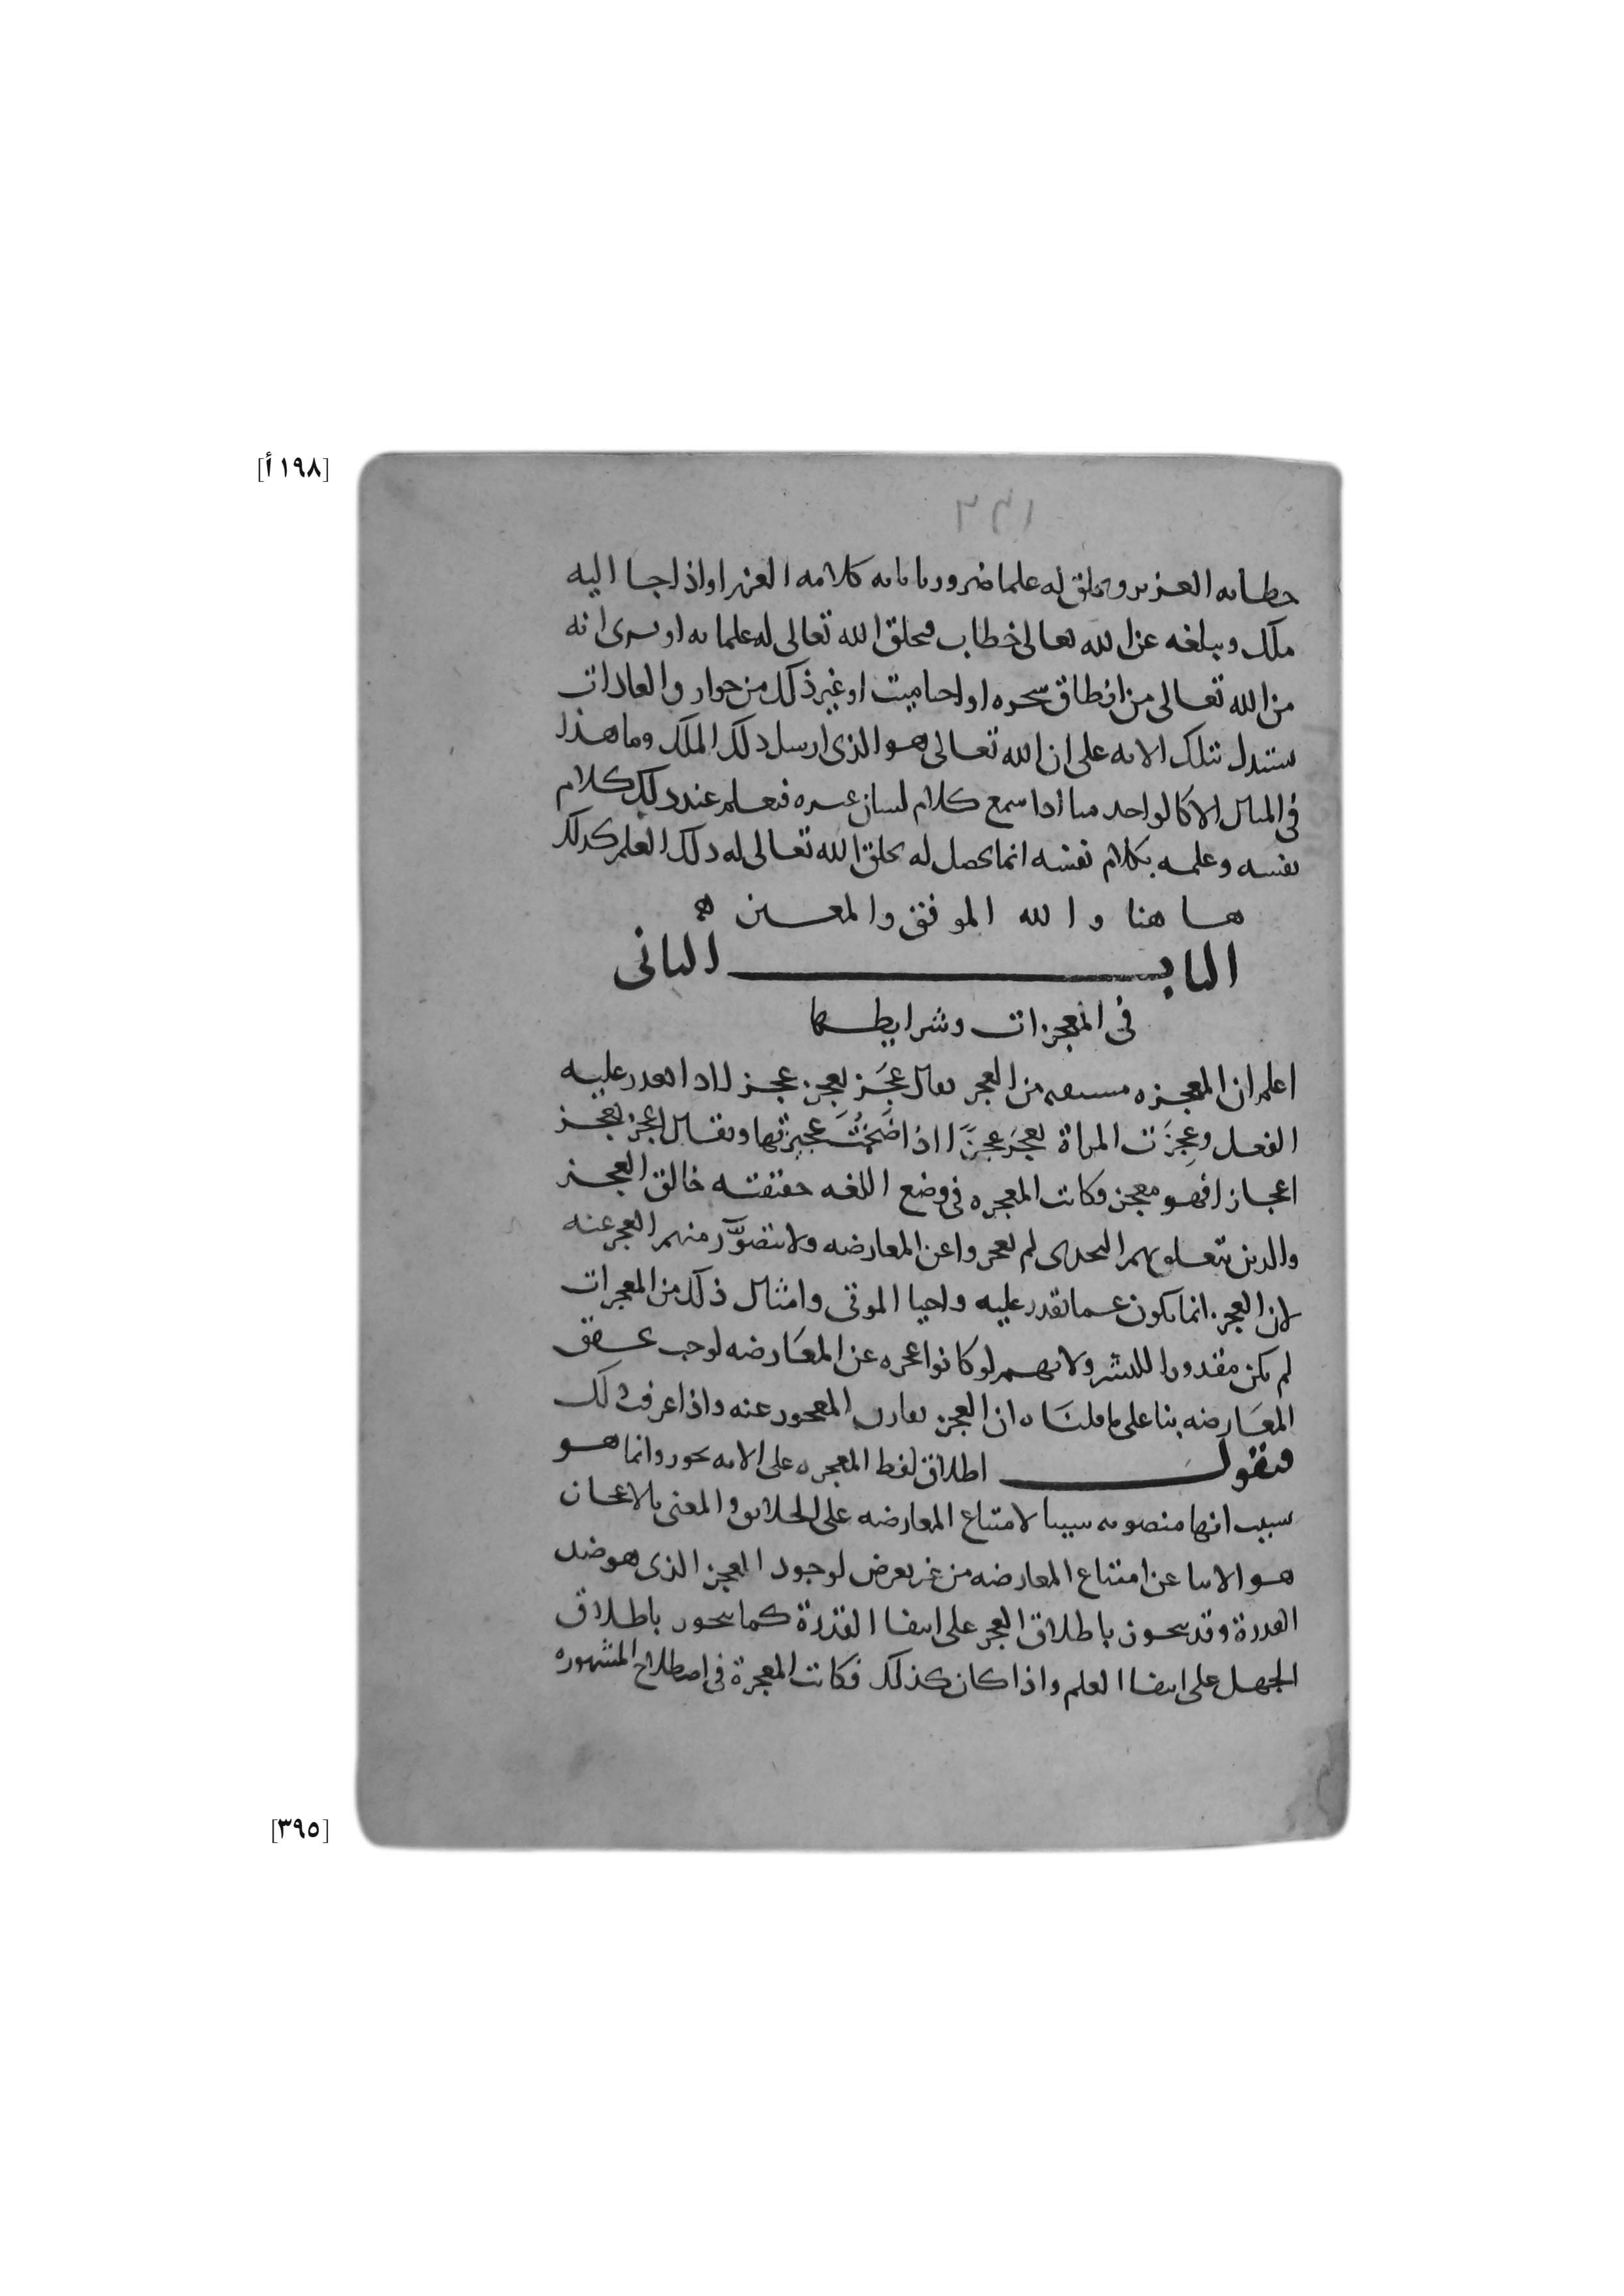 [١٩٨ أ]
خطابه العزيز ويخلق له علما ضروريا بانه كلامه العزيز او اذا جا اليه
ملك ويبلغه عن الله تعالى خطاب فيخلق الله تعالى له علما به او يرى انه
من الله تعالى من انطاق شجره او احيا ميت او غير ذلك من خوارق العادات
يستدل بتلك الايه على ان الله تعالى هو الذى ارسل ذلك الملك وما هذا
فى المثال الا كالواحد منا اذا سمع كلام لسان غيره فيعلم عند ذلك كلام
نفسه وعلمه بكلام نفسه انما يحصل له بخلق الله تعالى له ذلك العلم كذلك
ها هنا والله الموفق والمعين
الباب الثانى
فى المعجزات وشرايطها
اعلم ان المعجزه مشتقه من العجز يقال عَجَز يعجز عجزا اذا تعذر عليه
الفعل وعجِزَت المراة تعجَز عجزًا اذا ضَخُمَت عجيزتها ويقال اعجز يعجز
اعجازا فهو معجز فكانت المعجزه فى وضع اللغه حقيقته خالق العجز
والذين يتعلق بهم التحدى لم يعجزوا عن المعارضه ولا يتصوَّر منهم العجز عنه
لان العجز انما يكون عما تقدر عليه واحيا الموتى وامثال ذلك من المعجزات
لم يكن مقدورا للبشر ولانهم لو كانوا عجزه عن المعَارضه لوجب تحقق
المعَارضه بنا على ما قلنَاه ان العجز يقارن المعجوز عنه واذا عرفت ذلك
فنقول اطلاق لفظ المعجزه على الايه تجوز وانما هو
سبب انها منصوبه سببا لامتناع المعارضه على الخلايق والمعنى بالاعجاز
هو الانبا عن امتناع المعارضه من غير تعرض لوجود العجز الذى هو ضد
القدرة وقد يتجوز باطلاق العجز على انتفا القدرة كما يتجوز باطلاق
الجهل على انتفا العلم واذا كان كذلك فكانت المعجزة فى اصطلاح المشهوره
[٣٩٥]